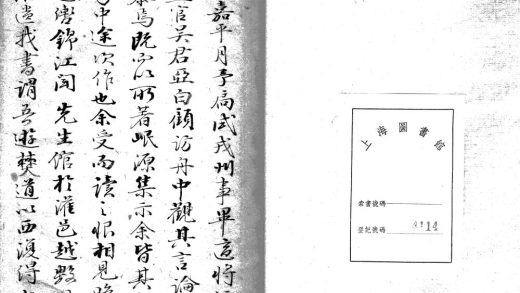 嘉平月予偏試戎州事畢將
官吳君亞白顧訪舟中觀其言論
焉既以所著岷源集示余皆其
中途次作也余受而讀之恨相見晚
轡錦江聞先生館於灌邑越數
遺我書謂吾遊僰道以西復得
上海圖書館
索書號碼
登記號碼 14